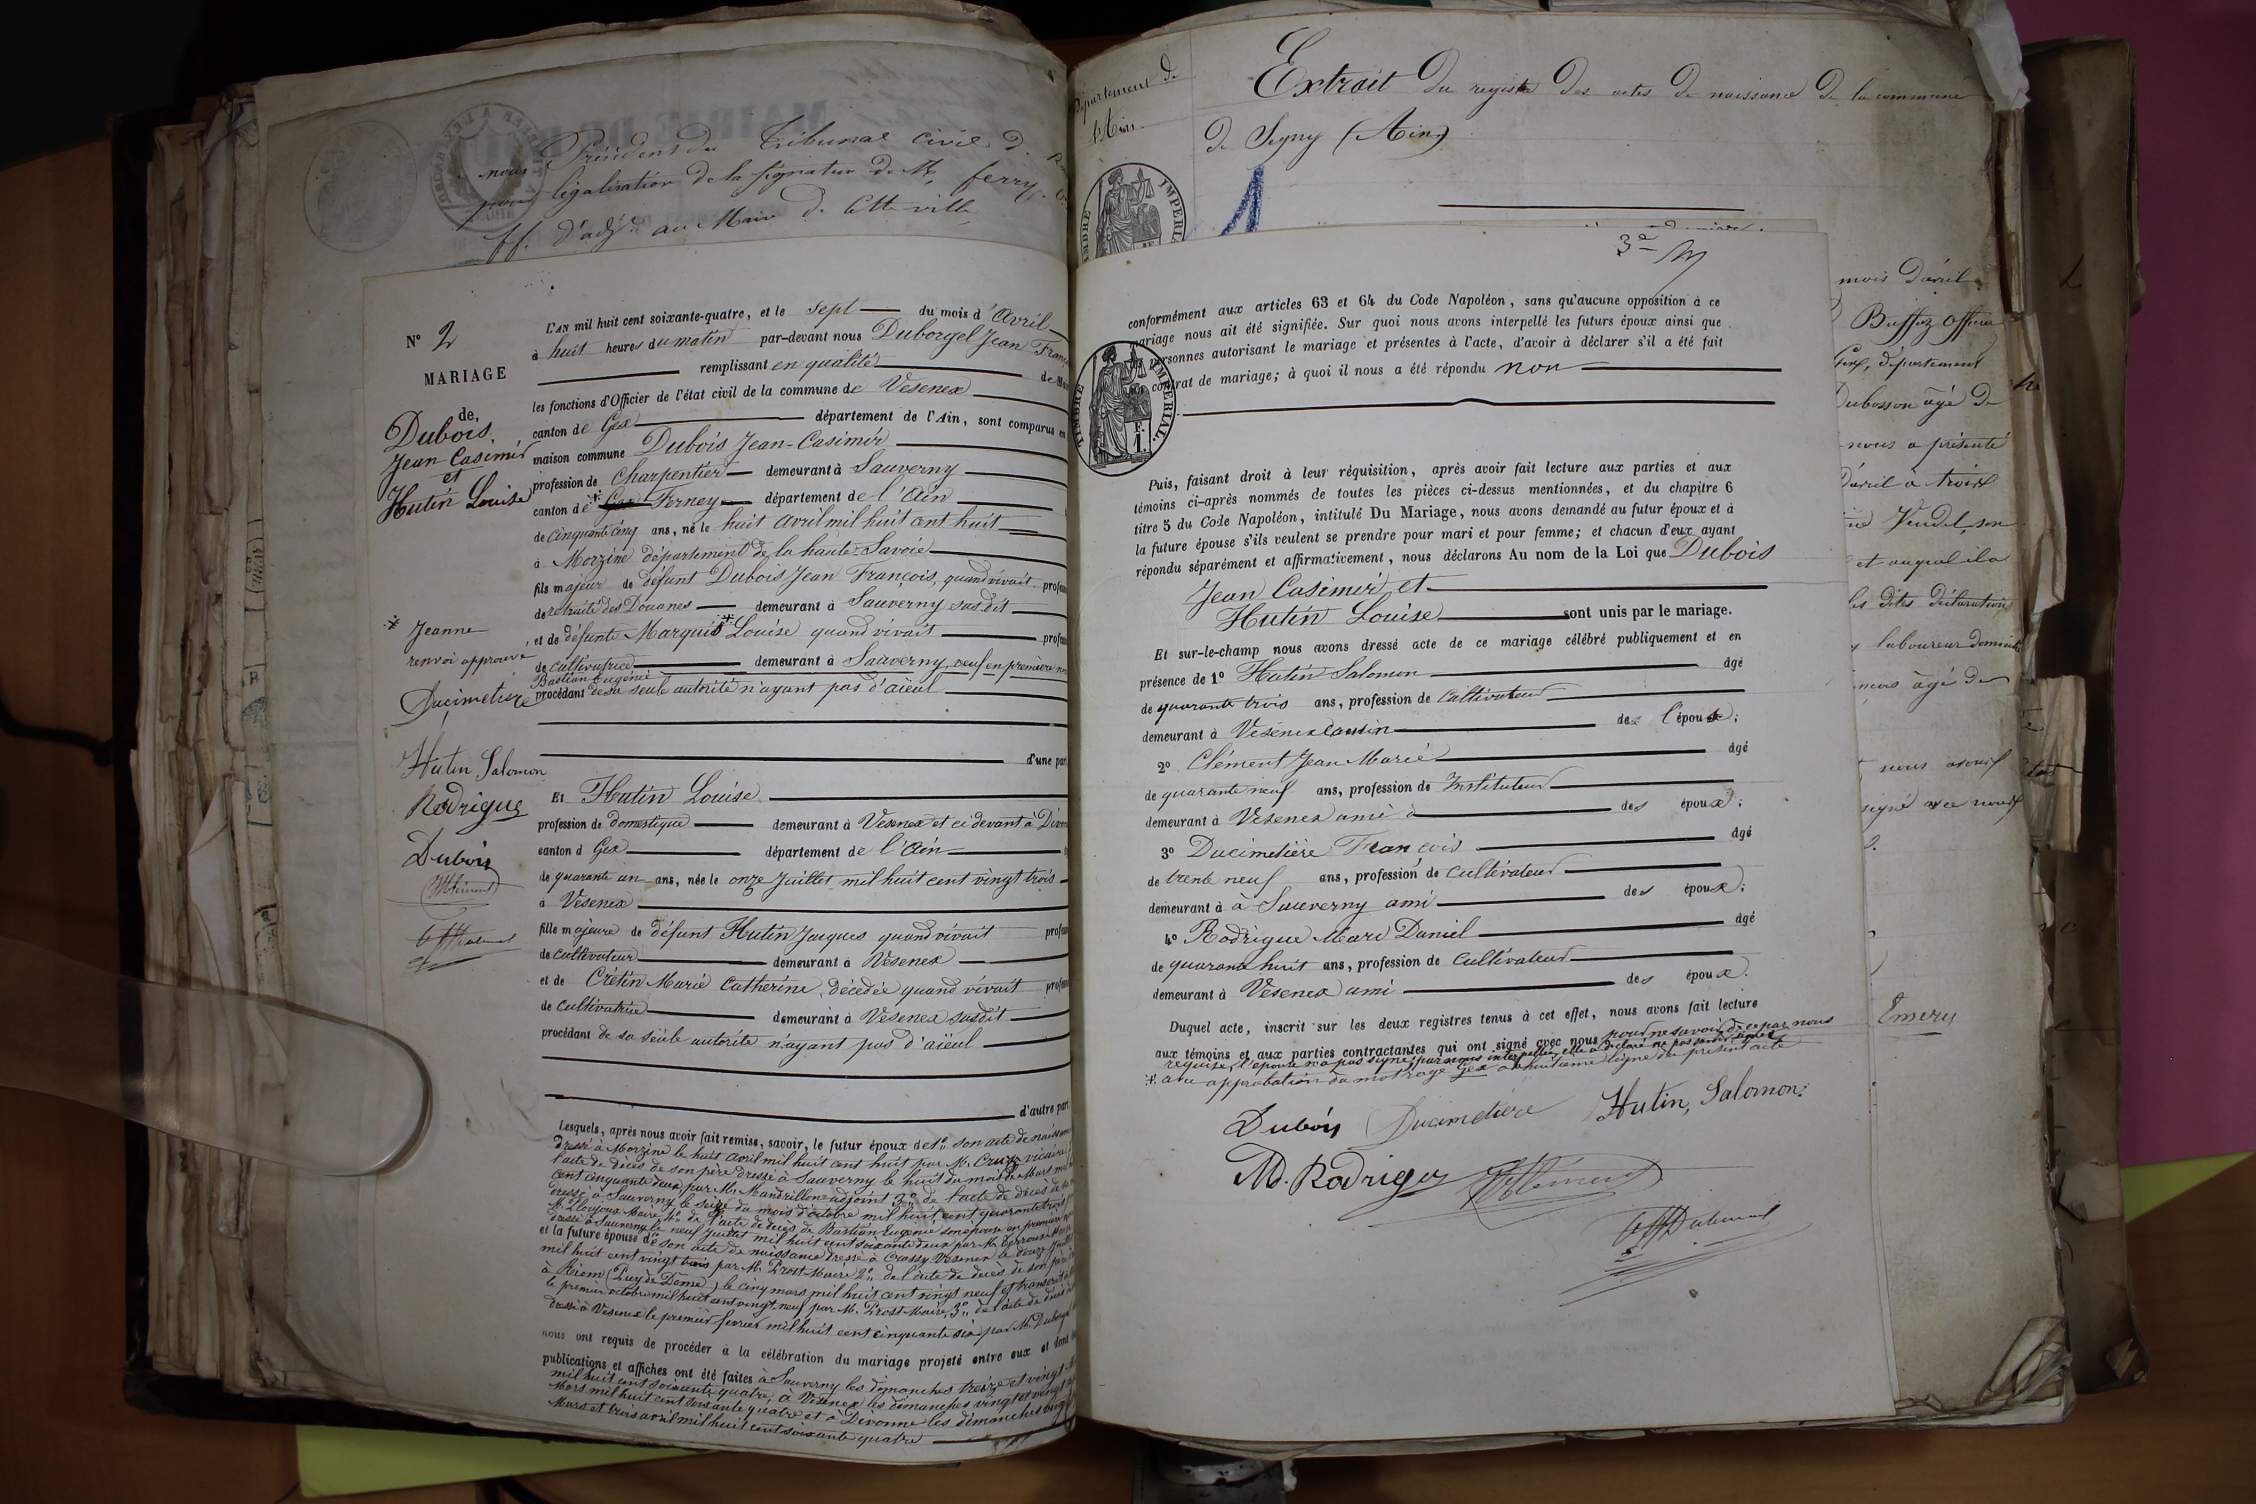 Président du Tribunal civil d
nous
pour légalisation de la signature de M. ferry
ff. d'adjt au Maire de cette ville
N° 2
MARIAGE
de
Dubois
Jean Casimir
et
Hutin Louise
* Jeanne
renvoi approuvé
Ducimetière
Hutin Salomon
Rodrigue
Dubois
L'AN mil huit cent soixante-quatre, et le sept du mois d'Avril
à huit heures du matin par-devant nous Duborgel Jean Franç
remplissant en qualité de Mai
les fonctions d'Officier de l'état civil de la commune de Vesenex
canton de Gex département de l'Ain, sont comparus en
maison commune Dubois Jean-Casimir
profession de Charpentier demeurant à Sauverny
canton de * Gex Ferney département de l'Ain
de cinquante cinq ans, né le huit avril mil huit cent huit
à Morzine département de la haute-Savoie
fils majeur de défunt Dubois Jean François, quand vivait profess
de retraité des Douanes demeurant à Sauverny susdit
et de défunte Marquis * Louise quand vivait profess
de cultivatrice demeurant à Sauverny, veuf en première no
Bastian Eugénie
procédant de sa seule autorité n'ayant pas d'aïeul
d'une part
Et Hutin Louise
profession de domestique demeurant à Vesenex et ci devant à Divon
canton d Gex département de l'Ain
de quarante un ans, née le onze Juillet mil huit cent vingt trois
à Vesenex
fille majeure de défunt Hutin Jacques quand vivait profess
de cultivateur demeurant à Vesenex
et de Crétin Marie Catherine, décédée quand vivait profess
de cultivatrice demeurant à Vesenex susdit
procédant de sa seule autorité n'ayant pas d'aïeul
d'autre part
Lesquels, après nous avoir fait remise, savoir, le futur époux de 1° son acte de naissance
dressé à Morzine le huit avril mil huit cent huit par M. Cruz vicaire
l'acte de décès de son père dressé à Sauverny le huit du mois de Mars mil
cent cinquante deux par M. Mandrillon adjoint 3° de l'acte de décès de
dressé à Sauverny le seize du mois d'octobre mil huit cent quarante trois
Maire 4° de l'acte de décès de Bastian Eugénie son épouse en premières
dressé à Sauverny le neuf juillet mil huit cent soixante deux par M.
et la future épouse d'e son acte de naissance dressé à Crassy Vesenex le douze Juillet
mil huit cent vingt trois par M. Prost Maire 2° de l'acte de décès de son père
à Riom (Puy de Dôme) le cinq mars mil huit cent vingt neuf et transcrit à
le premier octobre mil huit cent vingt neuf par M. Prost Maire, 3° de l'acte de décès
dressé à Vesenex le premier février mil huit cent cinquante six par M. Duborgel
nous ont requis de procéder à la célébration du mariage projeté entre eux et dont les
publications et affiches ont été faites à Sauverny les dimanches treize et vingt
mil huit cent soixante quatre, à Vesenex les dimanches vingt et vingt
Mars mil huit cent soixante quatre et à Divonne les dimanches vingt
Mars et trois avril mil huit cent soixante quatre
Département de
l'Ain
Extrait du registre des actes de naissance de la commune
de Segny (Ain)
1
TIMBRE IMPÉRIAL
3e M
conformément aux articles 63 et 64 du Code Napoléon, sans qu'aucune opposition à ce
mariage nous ait été signifiée. Sur quoi nous avons interpellé les futurs époux ainsi que
personnes autorisant le mariage et présentes à l'acte, d'avoir à déclarer s'il a été fait
contrat de mariage; à quoi il nous a été répondu non
TIMBRE IMPÉRIAL.
F.
1.
Puis, faisant droit à leur réquisition, après avoir fait lecture aux parties et aux
témoins ci-après nommés de toutes les pièces ci-dessus mentionnées, et du chapitre 6
titre 5 du Code Napoléon, intitulé Du Mariage, nous avons demandé au futur époux et à
la future épouse s'ils veulent se prendre pour mari et pour femme; et chacun d'eux ayant
répondu séparément et affirmativement, nous déclarons Au nom de la Loi que Dubois
Jean Casimir et
Hutin Louise sont unis par le mariage.
Et sur-le-champ nous avons dressé acte de ce mariage célébré publiquement et en
présence de 1° Hutin Salomon âgé
de quarante trois ans, profession de Cultivateur
demeurant à Vesenex cousin de l'épouse;
2° Clément Jean Marie âgé
de quarante neuf ans, profession de Instituteur
demeurant à Vesenex ami à des époux;
3° Ducimetière François âgé
de trente neuf ans, profession de Cultivateur
demeurant à à Sauverny ami des époux;
4° Rodrigue Marc Daniel âgé
de quarante huit ans, profession de Cultivateur
demeurant à Vesenex ami des époux.
Duquel acte, inscrit sur les deux registres tenus à cet effet, nous avons fait lecture
aux témoins et aux parties contractantes qui ont signé avec nous pour ne savoir de ce par nous
requise, l'épouse n'a pas signé, par nous interpellée elle a déclaré ne pas savoir signer
* avec approbation du mot rayé Gex a huitième ligne du présent acte
Dubois Ducimetière Hutin, Salomon
MD. Rodrigue JMClément
mois d'avril
Buffaz officier
Gex, département
Dubosson âgé de
nous a présenté
d'avril à trois
Vendel, son
et auquel il a
les dites déclaration
laboureur domicili
âgé de
signé avec nous
Emery